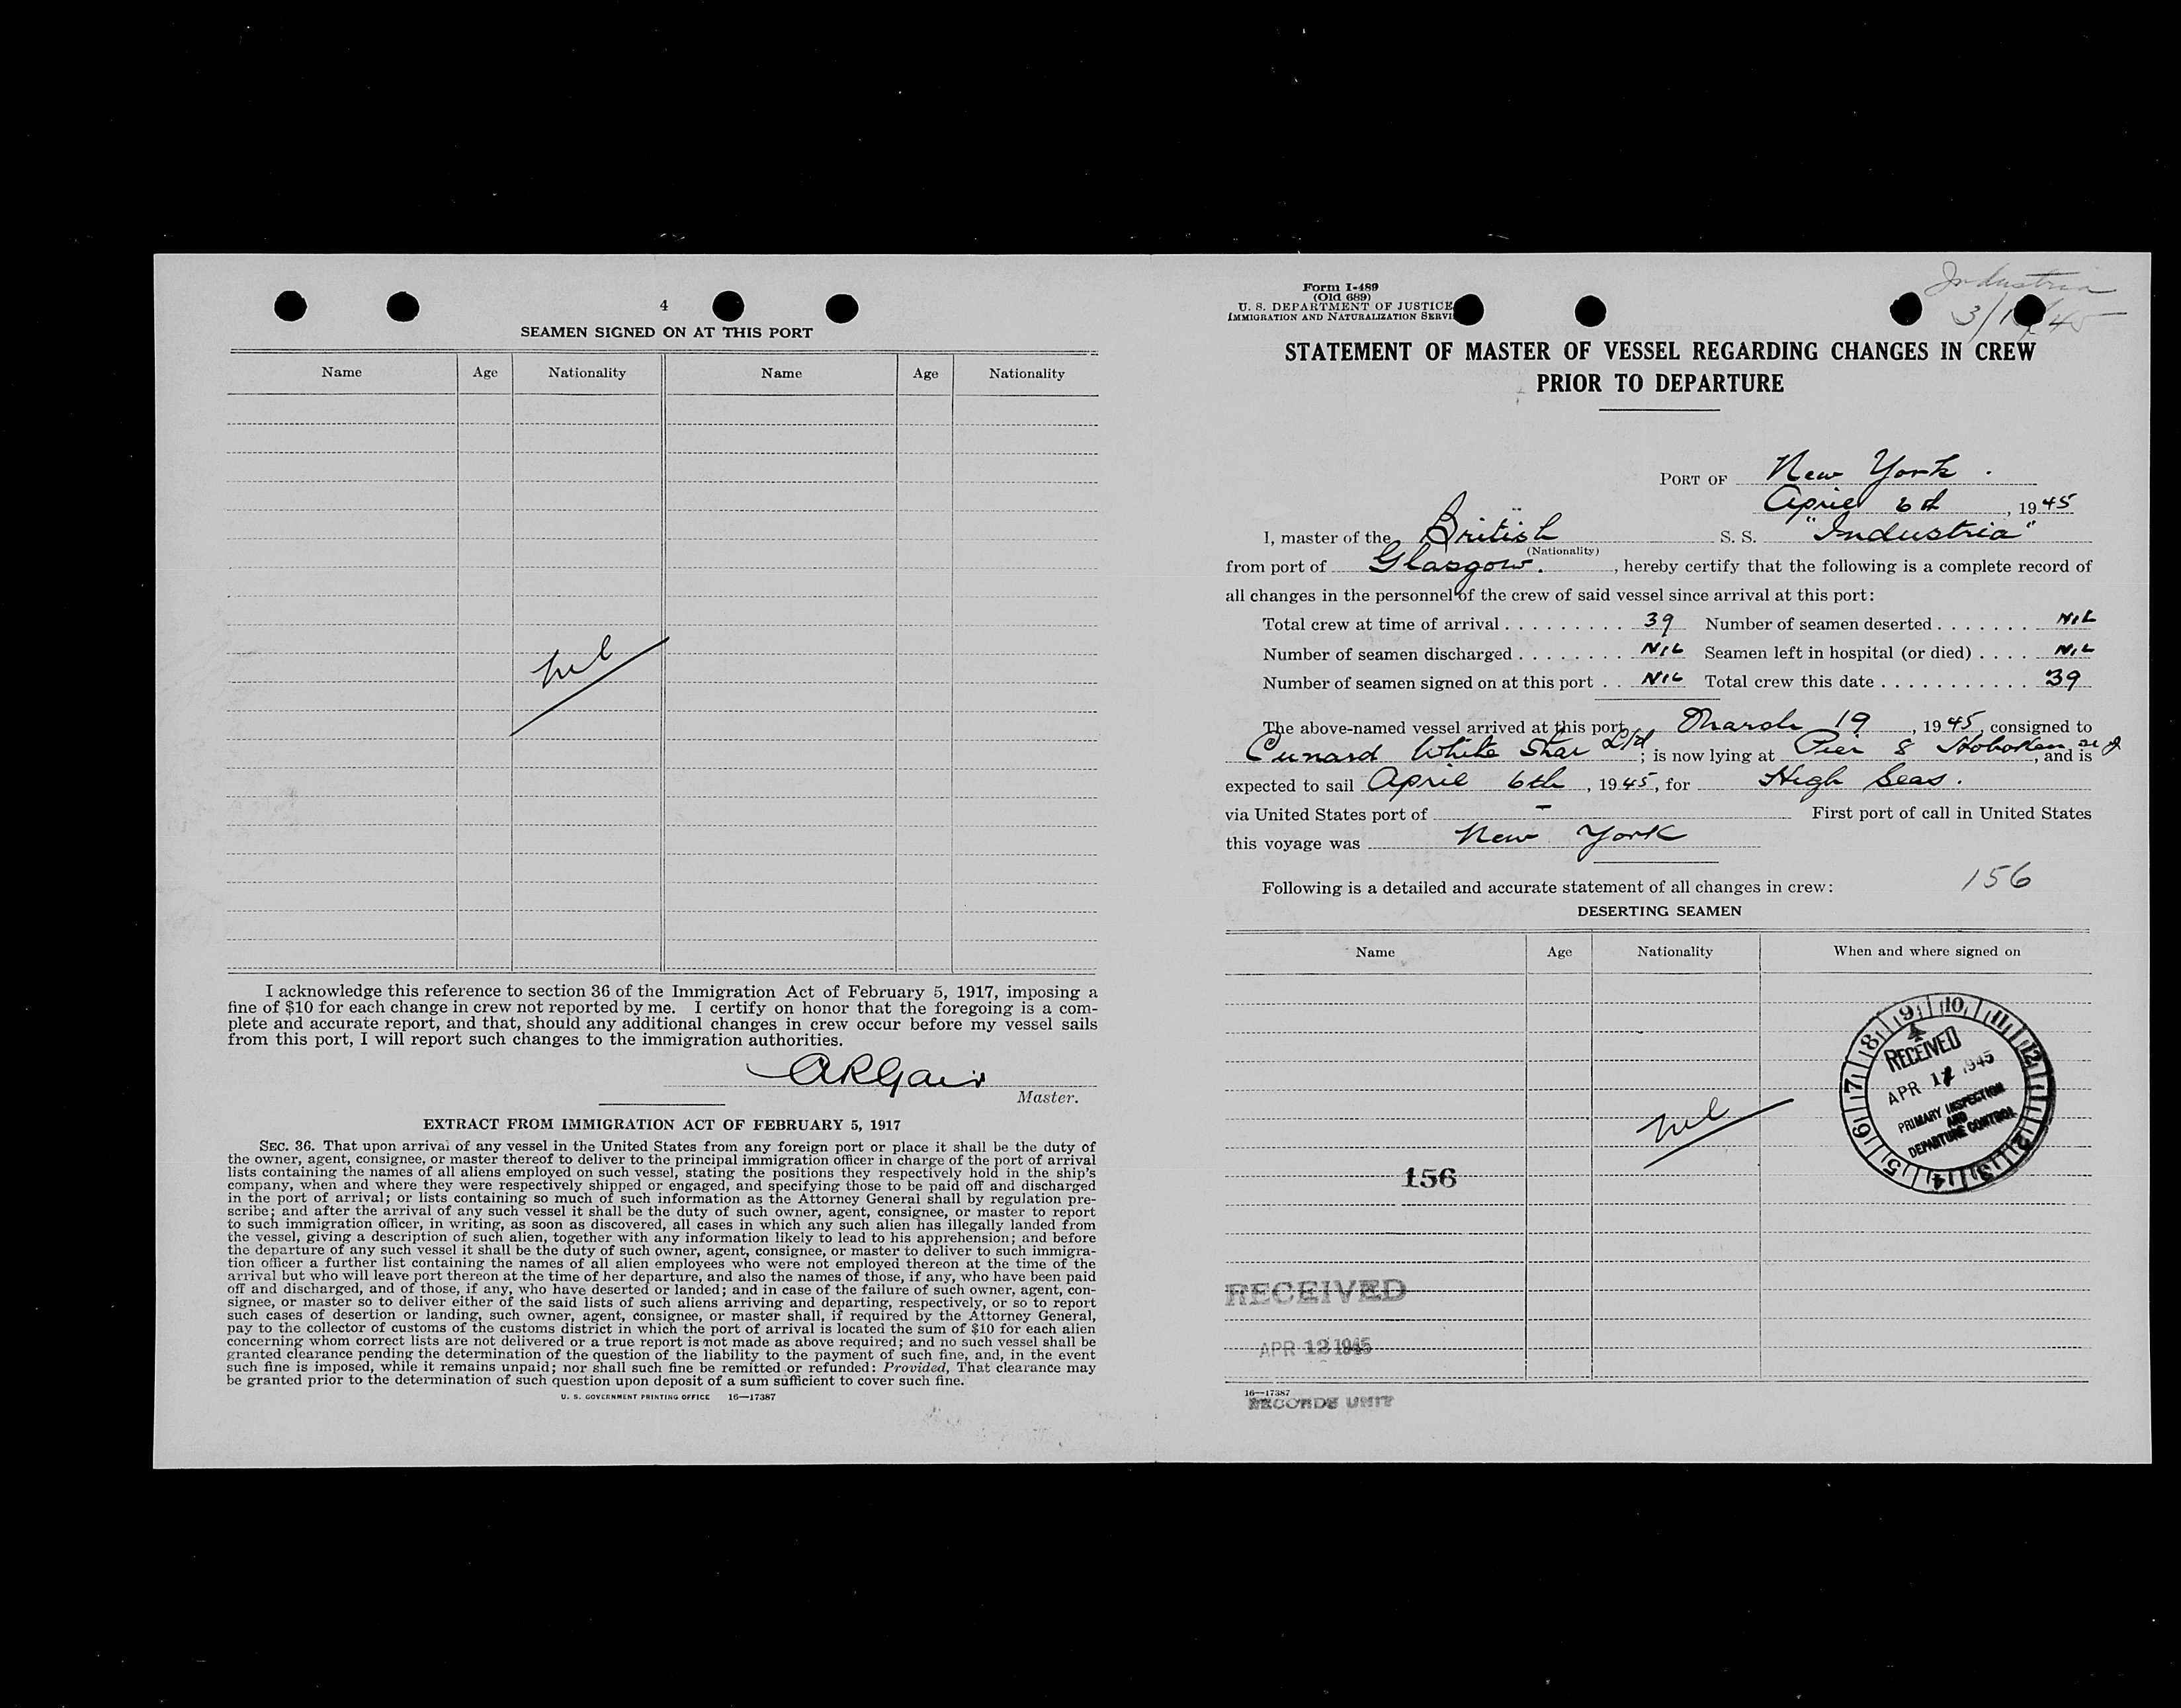 4
SEAMEN SIGNED ON AT THIS PORT
Name Age Nationality Name Age Nationality
Nil
I acknowledge this reference to section 36 of the Immigration Act of February 5, 1917, imposing a
fine of $10 for each change in crew not reported by me. I certify on honor that the foregoing is a com-
plete and accurate report, and that, should any additional changes in crew occur before my vessel sails
from this port, I will report such changes to the immigration authorities.
ARGair
Master.
EXTRACT FROM IMMIGRATION ACT OF FEBRUARY 5, 1917
SEC. 36. That upon arrival of any vessel in the United States from any foreign port or place it shall be the duty of
the owner, agent, consignee, or master thereof to deliver to the principal immigration officer in charge of the port of arrival
lists containing the names of all aliens employed on such vessel, stating the positions they respectively hold in the ship's
company, when and where they were respectively shipped or engaged, and specifying those to be paid off and discharged
in the port of arrival; or lists containing so much of such information as the Attorney General shall by regulation pre-
scribe; and after the arrival of any such vessel it shall be the duty of such owner, agent, consignee, or master to report
to such immigration officer, in writing, as soon as discovered, all cases in which any such alien has illegally landed from
the vessel, giving a description of such alien, together with any information likely to lead to his apprehension; and before
the departure of any such vessel it shall be the duty of such owner, agent, consignee, or master to deliver to such immigra-
tion officer a further list containing the names of all alien employees who were not employed thereon at the time of the
arrival but who will leave port thereon at the time of her departure, and also the names of those, if any, who have been paid
off and discharged, and of those, if any, who have deserted or landed; and in case of the failure of such owner, agent, con-
signee, or master so to deliver either of the said lists of such aliens arriving and departing, respectively, or so to report
such cases of desertion or landing, such owner, agent, consignee, or master shall, if required by the Attorney General,
pay to the collector of customs of the customs district in which the port of arrival is located the sum of $10 for each alien
concerning whom correct lists are not delivered or a true report is not made as above required; and no such vessel shall be
granted clearance pending the determination of the question of the liability to the payment of such fine, and, in the event
such fine is imposed, while it remains unpaid; nor shall such fine be remitted or refunded: Provided, That clearance may
be granted prior to the determination of such question upon deposit of a sum sufficient to cover such fine.
U. S. GOVERNMENT PRINTING OFFICE 16—17387
Form I-489
(Old 689)
U. S. DEPARTMENT OF JUSTICE
IMMIGRATION AND NATURALIZATION SERVI
Industria
STATEMENT OF MASTER OF VESSEL REGARDING CHANGES IN CREW
PRIOR TO DEPARTURE
PORT OF New York.
April 6th, 1945
I, master of the British S. S. "Industria"
(Nationality)
from port of Glasgow., hereby certify that the following is a complete record of
all changes in the personnel of the crew of said vessel since arrival at this port:
Total crew at time of arrival . . . . . . . . . 39 Number of seamen deserted . . . . . . . NIL
Number of seamen discharged . . . . . . . . NIL Seamen left in hospital (or died) . . . . NIL
Number of seamen signed on at this port . . NIL Total crew this date . . . . . . . . . . . 39
The above-named vessel arrived at this port March 19, 1945, consigned to
Cunard White Star Ltd; is now lying at Pier 8 Hoboken NJ, and is
expected to sail April 6th, 1945, for High Seas.
via United States port of - First port of call in United States
this voyage was New York
Following is a detailed and accurate statement of all changes in crew: 156
DESERTING SEAMEN
Name Age Nationality When and where signed on
9 10 11 12 1 2 3 4 5 6 7 8
RECEIVED
APR 12 1945
PRIMARY INSPECTION
AND
DEPARTURE CONTROL
Nil
156
RECEIVED
APR 12 1945
16—17387
RECORDS UNIT